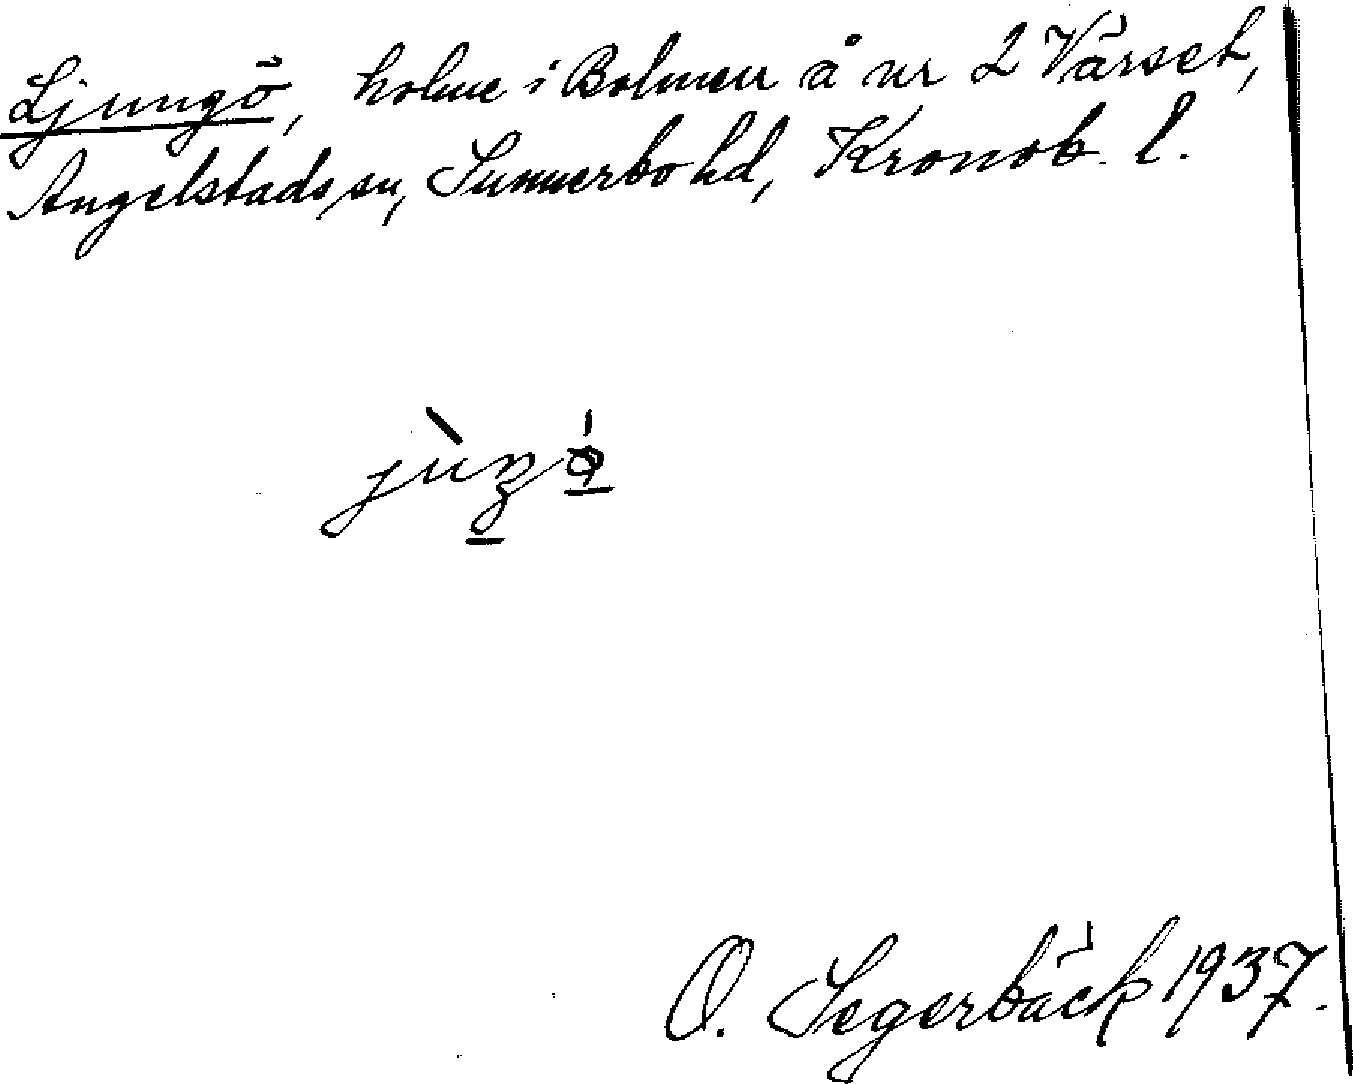 Ljungö, holme i Bolmen å nr 2 Värset,
Angelstads sn, Sunnerbo hd, Kronob. l.
O. Segerbäck 1937.